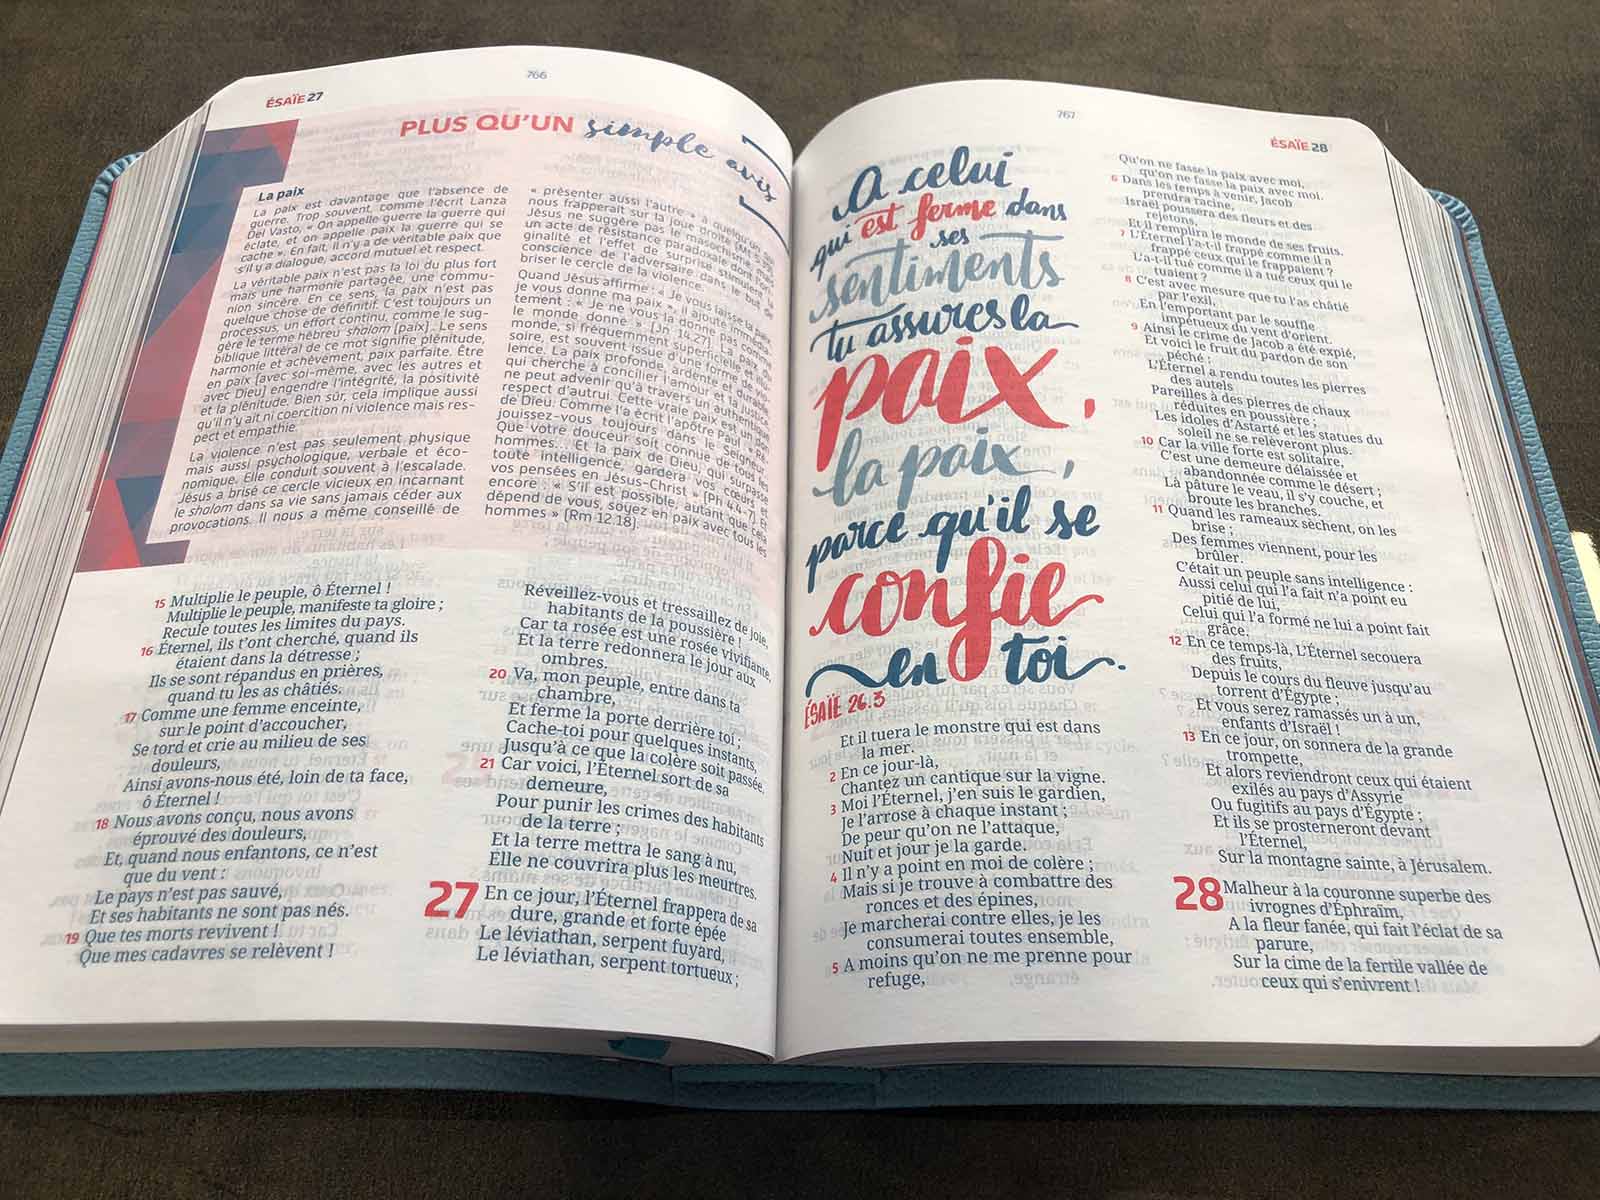 766
ÉSAÏE 27
PLUS QU'UN simple avis
La paix
La paix est davantage que l'absence de
guerre. Trop souvent, comme l'écrit Lanza
Del Vasto, « On appelle guerre la guerre qui
éclate, et on appelle paix la guerre qui se
cache ». En fait, il n'y a de véritable paix que
s'il y a dialogue, accord mutuel et respect.
La véritable paix n'est pas la loi du plus fort
mais une harmonie partagée, une commu-
nion sincère. En ce sens, la paix n'est pas
quelque chose de définitif. C'est toujours un
processus, un effort continu, comme le sug-
gère le terme hébreu : shalom [paix]. Le sens
biblique littéral de ce mot signifie plénitude,
harmonie et achèvement, paix parfaite. Être
en paix [avec soi-même, avec les autres et
avec Dieu] engendre l'intégrité, la positivité
et la plénitude. Bien sûr, cela implique aussi
qu'il n'y ait ni coercition ni violence mais res-
pect et empathie.
La violence n'est pas seulement physique
mais aussi psychologique, verbale et éco-
nomique. Elle conduit souvent à l'escalade.
Jésus a brisé ce cercle vicieux en incarnant
le shalom dans sa vie sans jamais céder aux
provocations. Il nous a même conseillé de
« présenter aussi l'autre » à quelqu'un qui
nous frapperait sur la joue droite [Mt 5.39].
Jésus ne suggère pas le masochisme mais
un acte de résistance paradoxale dont l'ori-
ginalité et l'effet de surprise stimulent la
conscience de l'adversaire dans le but de
briser le cercle de la violence.
Quand Jésus affirme : « Je vous laisse la paix,
je vous donne ma paix », il ajoute immédia-
tement : « Je ne vous la donne pas comme
le monde donne » [Jn 14.27]. La paix du
monde, si fréquemment superficielle et illu-
soire, est souvent issue d'une forme de vio-
lence. La paix profonde, ardente et durable,
qui cherche à concilier l'amour et la justice
ne peut advenir qu'à travers un authentique
respect d'autrui. Cette vraie paix est un don
de Dieu. Comme l'a écrit l'apôtre Paul : « Ré-
jouissez-vous toujours dans le Seigneur.
Que votre douceur soit connue de tous les
hommes... Et la paix de Dieu, qui surpasse
toute intelligence, gardera vos cœurs et
vos pensées en Jésus-Christ » [Ph 4.4-7]. Et
encore : « S'il est possible, autant que cela
dépend de vous, soyez en paix avec tous les
hommes » [Rm 12.18].
15 Multiplie le peuple, ô Éternel !
Multiplie le peuple, manifeste ta gloire ;
Recule toutes les limites du pays.
16 Éternel, ils t'ont cherché, quand ils
étaient dans la détresse ;
Ils se sont répandus en prières,
quand tu les as châtiés.
17 Comme une femme enceinte,
sur le point d'accoucher,
Se tord et crie au milieu de ses
douleurs,
Ainsi avons-nous été, loin de ta face,
ô Éternel !
18 Nous avons conçu, nous avons
éprouvé des douleurs,
Et, quand nous enfantons, ce n'est
que du vent :
Le pays n'est pas sauvé,
Et ses habitants ne sont pas nés.
19 Que tes morts revivent !
Que mes cadavres se relèvent !
Réveillez-vous et tressaillez de joie,
habitants de la poussière !
Car ta rosée est une rosée vivifiante,
Et la terre redonnera le jour aux
ombres.
20 Va, mon peuple, entre dans ta
chambre,
Et ferme la porte derrière toi ;
Cache-toi pour quelques instants,
Jusqu'à ce que la colère soit passée.
21 Car voici, l'Éternel sort de sa
demeure,
Pour punir les crimes des habitants
de la terre ;
Et la terre mettra le sang à nu,
Elle ne couvrira plus les meurtres.
27 En ce jour, l'Éternel frappera de sa
dure, grande et forte épée
Le léviathan, serpent fuyard,
Le léviathan, serpent tortueux ;
767
ÉSAÏE 28
A celui
qui est ferme dans
ses
sentiments
tu assures la
paix,
la paix,
parce qu'il se
confie
en toi.
ÉSAÏE 26.3
Et il tuera le monstre qui est dans
la mer.
2 En ce jour-là,
Chantez un cantique sur la vigne.
3 Moi l'Éternel, j'en suis le gardien,
Je l'arrose à chaque instant ;
De peur qu'on ne l'attaque,
Nuit et jour je la garde.
4 Il n'y a point en moi de colère ;
Mais si je trouve à combattre des
ronces et des épines,
Je marcherai contre elles, je les
consumerai toutes ensemble,
5 A moins qu'on ne me prenne pour
refuge,
Qu'on ne fasse la paix avec moi,
qu'on ne fasse la paix avec moi.
6 Dans les temps à venir, Jacob
prendra racine,
Israël poussera des fleurs et des
rejetons,
Et il remplira le monde de ses fruits.
7 L'Éternel l'a-t-il frappé comme il a
frappé ceux qui le frappaient ?
L'a-t-il tué comme il a tué ceux qui le
tuaient ?
8 C'est avec mesure que tu l'as châtié
par l'exil,
En l'emportant par le souffle
impétueux du vent d'orient.
9 Ainsi le crime de Jacob a été expié,
Et voici le fruit du pardon de son
péché :
L'Éternel a rendu toutes les pierres
des autels
Pareilles à des pierres de chaux
réduites en poussière ;
Les idoles d'Astarté et les statues du
soleil ne se relèveront plus.
10 Car la ville forte est solitaire,
C'est une demeure délaissée et
abandonnée comme le désert ;
Là pâture le veau, il s'y couche, et
broute les branches.
11 Quand les rameaux sèchent, on les
brise ;
Des femmes viennent, pour les
brûler.
C'était un peuple sans intelligence :
Aussi celui qui l'a fait n'a point eu
pitié de lui,
Celui qui l'a formé ne lui a point fait
grâce.
12 En ce temps-là, L'Éternel secouera
des fruits,
Depuis le cours du fleuve jusqu'au
torrent d'Égypte ;
Et vous serez ramassés un à un,
enfants d'Israël !
13 En ce jour, on sonnera de la grande
trompette,
Et alors reviendront ceux qui étaient
exilés au pays d'Assyrie
Ou fugitifs au pays d'Égypte ;
Et ils se prosterneront devant
l'Éternel,
Sur la montagne sainte, à Jérusalem.
28 Malheur à la couronne superbe des
ivrognes d'Éphraïm,
A la fleur fanée, qui fait l'éclat de sa
parure,
Sur la cime de la fertile vallée de
ceux qui s'enivrent !